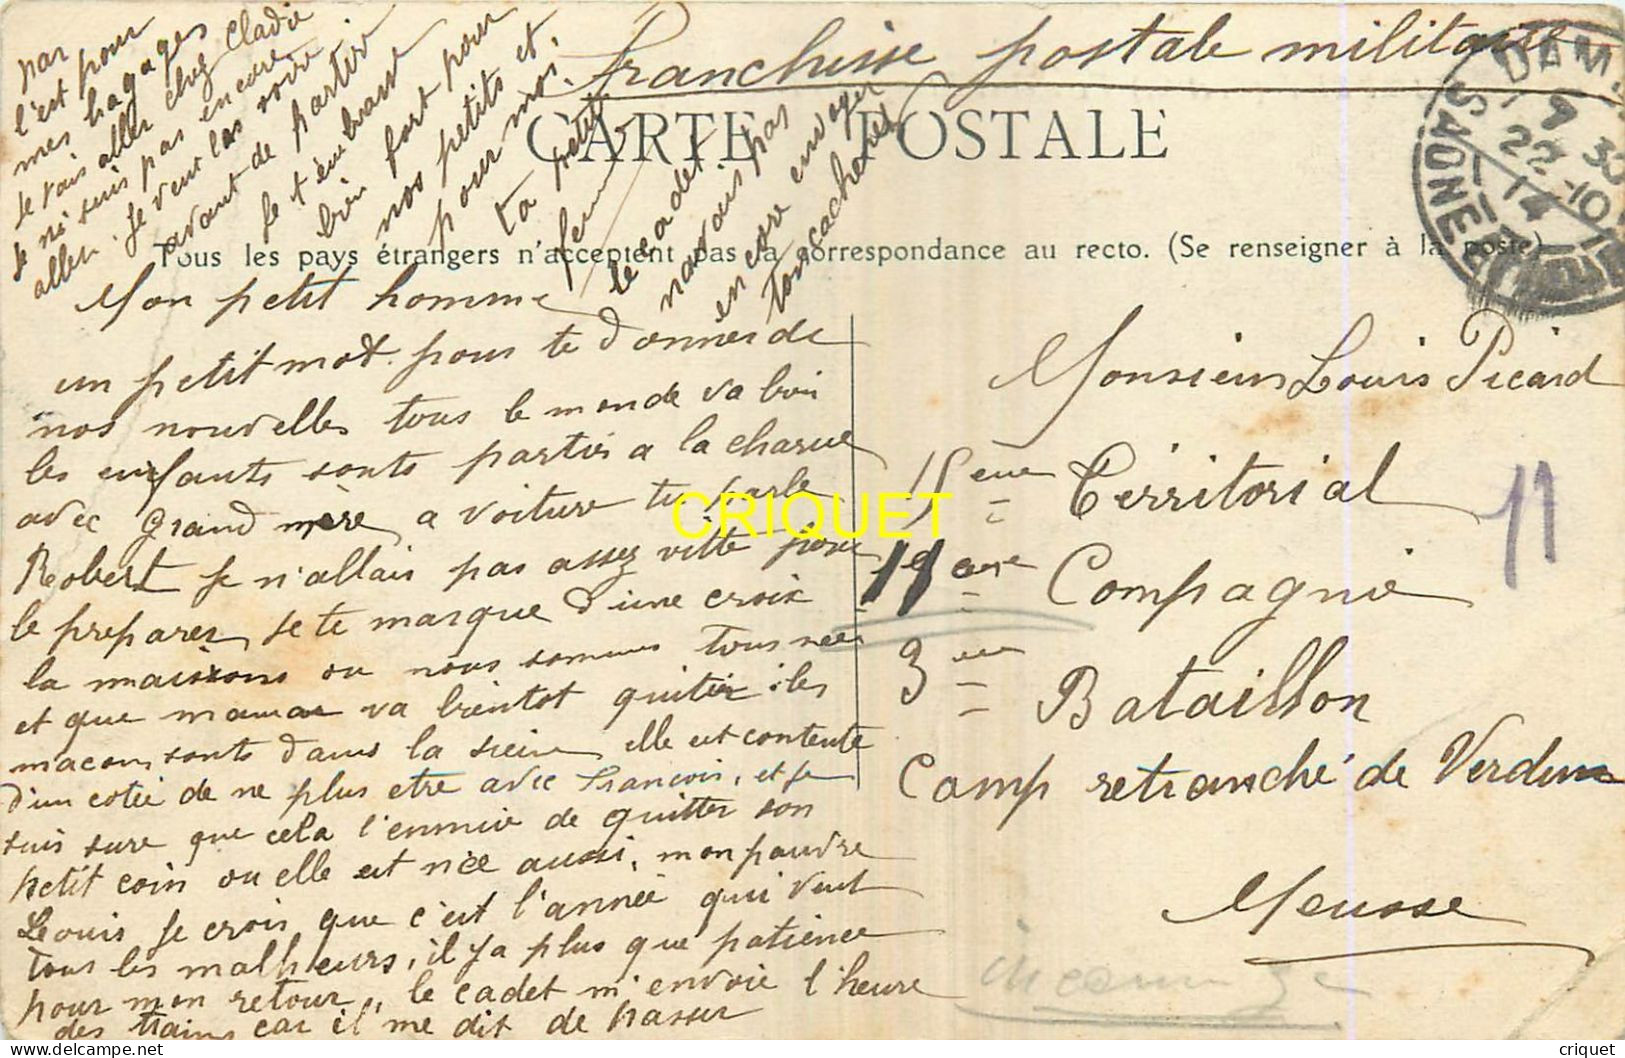 Franchise postale militaire
CARTE POSTALE
Tous les pays étrangers n'acceptent pas la correspondance au recto. (Se renseigner à la poste)
Mon petit homme
un petit mot pour te donner de
nos nouvelles tous le monde va bien
les enfants sonts partis a la charue
avec grand mère a voiture tu parle
Robert je n'allais pas assez vitte pour
le preparer, je te marque d'une croix
la maisons ou nous sommes tous née
et que maman va bientot quiter les
macons sonts dans la sieine elle est contente
d'un cotée de ne plus etre avec François, et je
suis sure que cela l'ennuie de quitter son
petit coin ou elle est née aussi, mon pauvre
Louis je crois que c'est l'année qui veut
tous les malheurs, il y a plus que patience
pour mon retour, le cadet m'envoie l'heure
des trains car il me dit de passer
par
l'est pour
mes bagages
je vais aller chez Cladie
je ne suis pas encore
aller. je veut les voire
avant de partir
je t'embrasse
bien fort pour
nos petits et
pour moi.
ta petite
femme
le cadet
ma vais pas
encore envoyer
ton cachenez
Monsieur Louis Picard
15eme Térritorial
11 eme Compagnie
3eme Bataillon
Camp retranché de Verdun
Meusse
11
inconnu
9 30
22 -10
14
SAONE
CRIQUET
criquet
delcampe.net